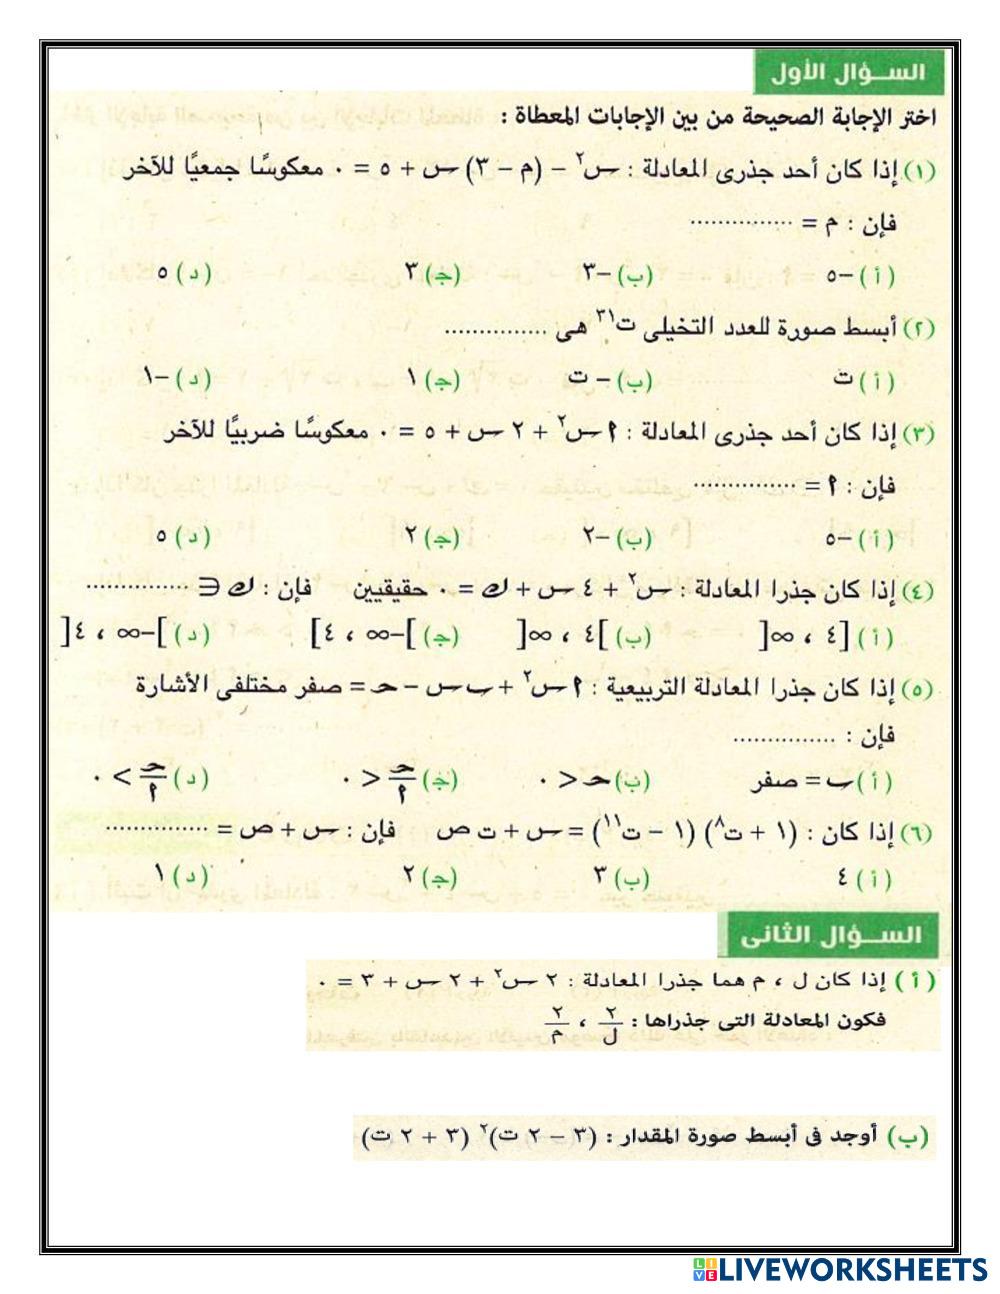 السؤال الأول
اختر الإجابة الصحيحة من بين الإجابات المعطاة :
(١) إذا كان أحد جذرى المعادلة : س٢ – (م – ٣) س + ٥ = ٠ معكوسًا جمعيًا للآخر
فإن : م = ...............
(أ) –٥ (ب) –٣ (ج) ٣ (د) ٥
(٢) أبسط صورة للعدد التخيلى ت٣١ هى ...............
(أ) ت (ب) – ت (ج) ١ (د) –١
(٣) إذا كان أحد جذرى المعادلة : ٢م س٢ + ٢ س + ٥ = ٠ معكوسًا ضربيًا للآخر
فإن : م = ...............
(أ) –٥ (ب) –٢ (ج) ٢ (د) ٥
(٤) إذا كان جذرا المعادلة : س٢ + ٤ س + ك = ٠ حقيقيين فإن : ك ∋ ...............
(أ) [٤ ، ∞[ (ب) ]٤ ، ∞[ (ج) ]–∞ ، ٤] (د) ]–∞ ، ٤[
(٥) إذا كان جذرا المعادلة التربيعية : ٢ س٢ + ب س – حـ = صفر مختلفى الأشارة
فإن : ...............
(أ) ب = صفر (ب) حـ > ٠ (ج) حـ/٢ > ٠ (د) حـ/٢ < ٠
(٦) إذا كان : (١ + ت٨) (١ – ت١١) = س + ت ص فإن : س + ص = ...............
(أ) ٤ (ب) ٣ (ج) ٢ (د) ١
السؤال الثانى
(أ) إذا كان ل ، م هما جذرا المعادلة : ٢ س٢ + ٢ س + ٣ = ٠
فكون المعادلة التى جذراها : ٢/ل ، ٢/م
(ب) أوجد فى أبسط صورة المقدار : (٣ – ٢ ت)٢ (٣ + ٢ ت)
LIVEWORKSHEETS